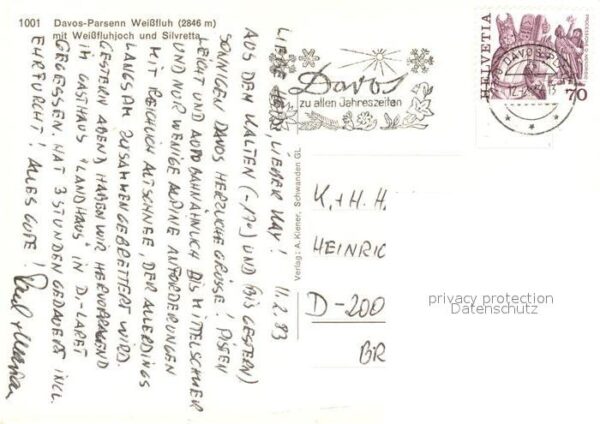 1001 Davos-Parsenn Weißfluh (2846 m)
mit Weißfluhjoch und Silvretta
LIEBE LIEBER KAY! 11.2.83
AUS DEM KALTEN (-17°) UND (BIS GESTERN)
SONNIGEN DAVOS HERZLICHE GRÜSSE! PISTEN
LEICHT UND AUTOBAHNÄHNLICH BIS MITTELSCHWER
UND NUR WENIGE ALPINE ANFORDERUNGEN
MIT REICHLICH ALTSCHNEE, DER ALLERDINGS
LANGSAM ZUSAMMENGEBRETTERT WIRD.
GESTERN ABEND HABEN WIR HERVORRAGEND
IM GASTHAUS "LANDHAUS" IN D-LARET
GEGESSEN. HAT 3 STUNDEN GEDAUERT INCL.
EHRFURCHT! ALLES GUTE!
Verlag: A. Kiener, Schwanden GL
Davos
zu allen Jahreszeiten
HELVETIA
70
DAVOS
K. + H. H.
HEINRIC
D-200
BR
privacy protection
Datenschutz